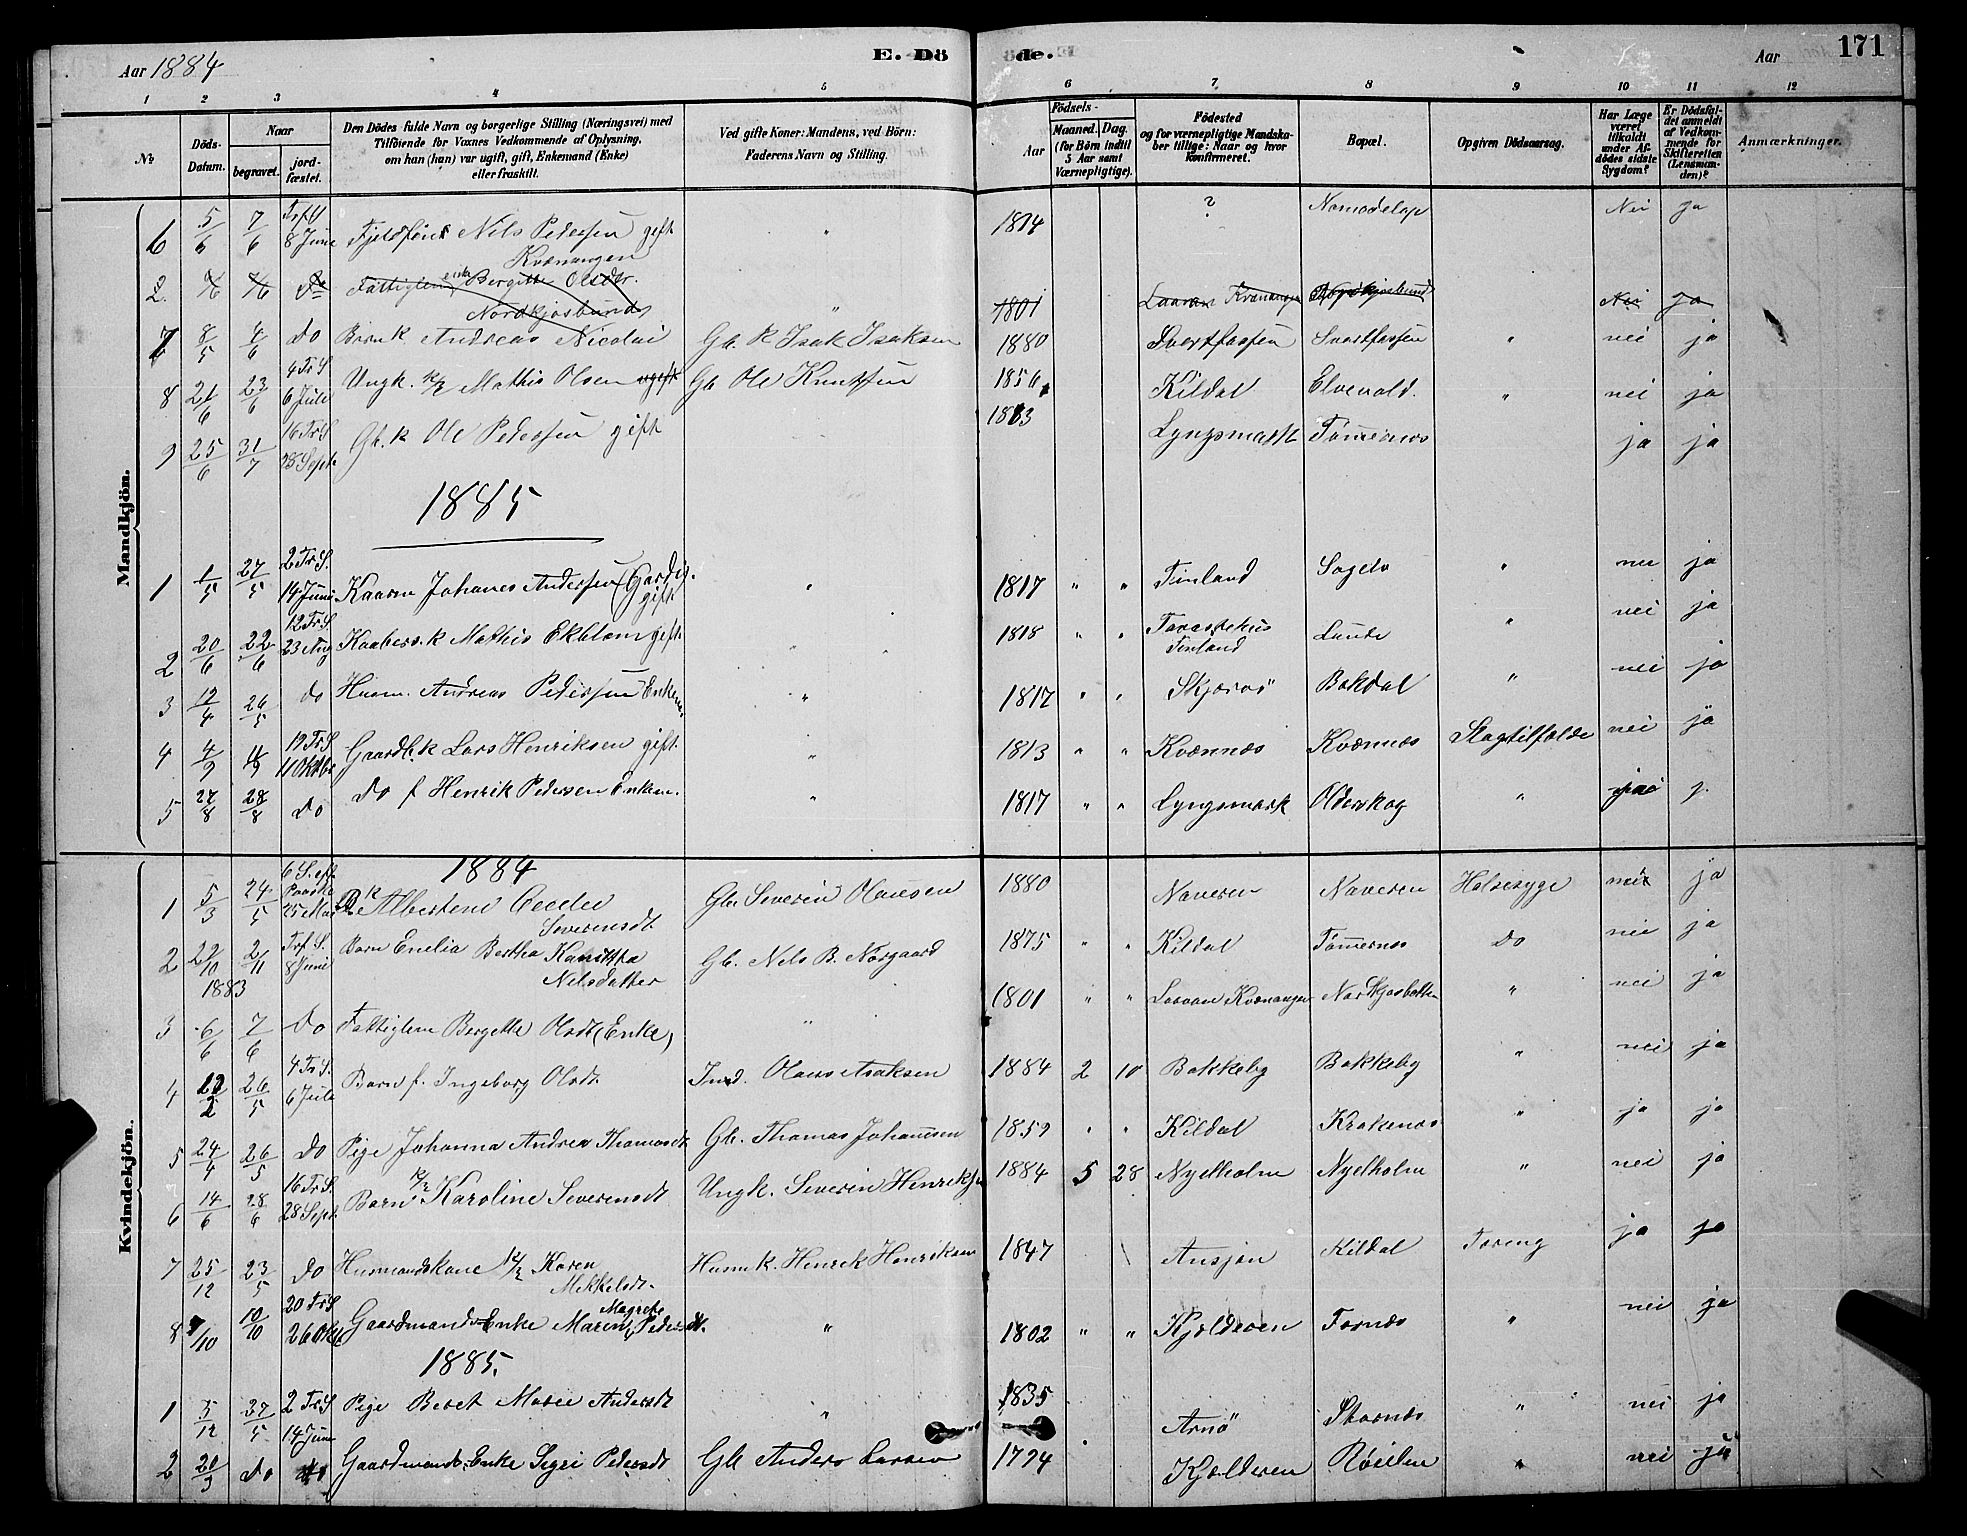 Aar 1884 E. Dö de. Aar 171
1 2 3 4 5 6 7 8 9 10 11 12
№ Döds-Datum. Naar begravet. jord-fæstet. Den Dödes fulde Navn og borgerlige Stilling (Næringsvei) med Tilföiende for Voxnes Vedkommende af Oplysning, om han (hun) var ugift, gift, Enkemand (Enke) eller fraskilt. Ved gifte Koner: Mandens, ved Börn: Faderens Navn og Stilling. Födsels- Aar Maaned. Dag. (for Börn indtil 5 Aar samt Værnepligtige). Födested og for værnepligtige Mandskaber tillige: Naar og hvor konfirmeret. Bopæl. Opgiven Dödsaarsag. Har Læge været tilkaldt under Afdödes sidste Sygdom? Er Dödsfaldet anmeldt af Vedkommende for Skifteretten (Lensmanden)? Anmærkninger.
Mandkjön.
6 5/6 7/6 8 Juni Nils Pedersen gift " 1814 ? Nei ja
Kvænangen
2. Do Fattiglem enke Bergitte Olsdtr. 1801 Kvænangen Nei ja
Nordkjosbund
7 8/5 4/6 Do Barn k Andreas Nicolai Gb. k Isak Isaksen 1880 Svartfossen Svartfossen " nei ja
8 21/6 23/6 4 Tr S 6 Juli Ungk. k/2 Mathis Olsen ugift Gb Ole Knutsen 1856 Kildal Elvevold. " nei ja
9 25/6 31/7 16 Tr S 28 Sept. Gb. k Ole Pedersen gift 1813 Lyngsmark ja ja
1885
1 1/5 27/5 2 Tr S. 14 Juni Kaaren Johanes Andersen (Gardb. gift " 1817 " " Finland " nei ja
2 20/6 22/6 12 Tr S. 23 Aug k Mathis Ekblom gift " 1818 " " Finland Lunde " nei ja
3 12/4 26/5 do Husm. Andreas Pedersen Enkem. " 1817 " " Skjærvö Bakdal " nei ja
4 4/9 11/9 19 Tr S 11 Oktbr Gaardb. k Lars Henriksen gift " 1813 " " Kvænnes Kvænnes Slagtilfælde nei ja
5 27/8 28/8 Do do f Henrik Pedersen Enkem. " 1817 " " Lyngsmark Olderskog "
Kvindekjön.
1884
1 5/3 24/5 6 S. eft Paaske 25 Mai Albertine Cecelie Severinsdt. Gb. Severin Hansen 1880 Naveren Naveren Halsesyge nei ja
2 22/10 1883 2/11 Tr f S. 8 Juni Barn Enelia Bertha Kanutha Nilsdatter Gb. Nels B. Norgaard 1875 " " Kildal Do nei ja
3 6/6 7/6 Do Fattiglem Bergette Olsdt (Enke) " 1801 " " Kvænangen " nei ja
4 22/2 26/5 4 Tr S. 6 Juli Barn f. Ingeborg Olsdt. Ind. Olaus Isaksen 1884 2 10 Bakkeby Bakkeby " nei ja
5 24/4 26/5 Do Pige Johanna Andrea Thomasdt Gb. Thomas Johansen 1859 " " Kildal Krakenes " ja ja
6 14/6 28/6 16 Tr S. 28 Sept. Barn k/2 Karoline Severinsdt Ungk. Severin Henriksen 1884 5 28 Nyelholm Nyelholm " nei ja
7 25/12 23/5 Do Husmandskone k/2 Karen Mekkelsdt. Husm k. Henrik Henriksen 1847 Ansjøn Kildal Tæring ja ja
8 7/10 10/10 20 Tr S 26 Okt Gaardmands Enke Maren Magrete Pedersdt. " 1802 " " Kjælderen Tornæs " nei ja
1885.
1 5/12 27/5 2 Tr S 14 Juni Pige Beret Marie Andersdt " 1835 Arnö Stornæs " nei ja
2 20/3 do do Gaardmands Enke Sigri Pedersdt Gb Anders Larsen 1794 Kjælderen Röielen " nei ja